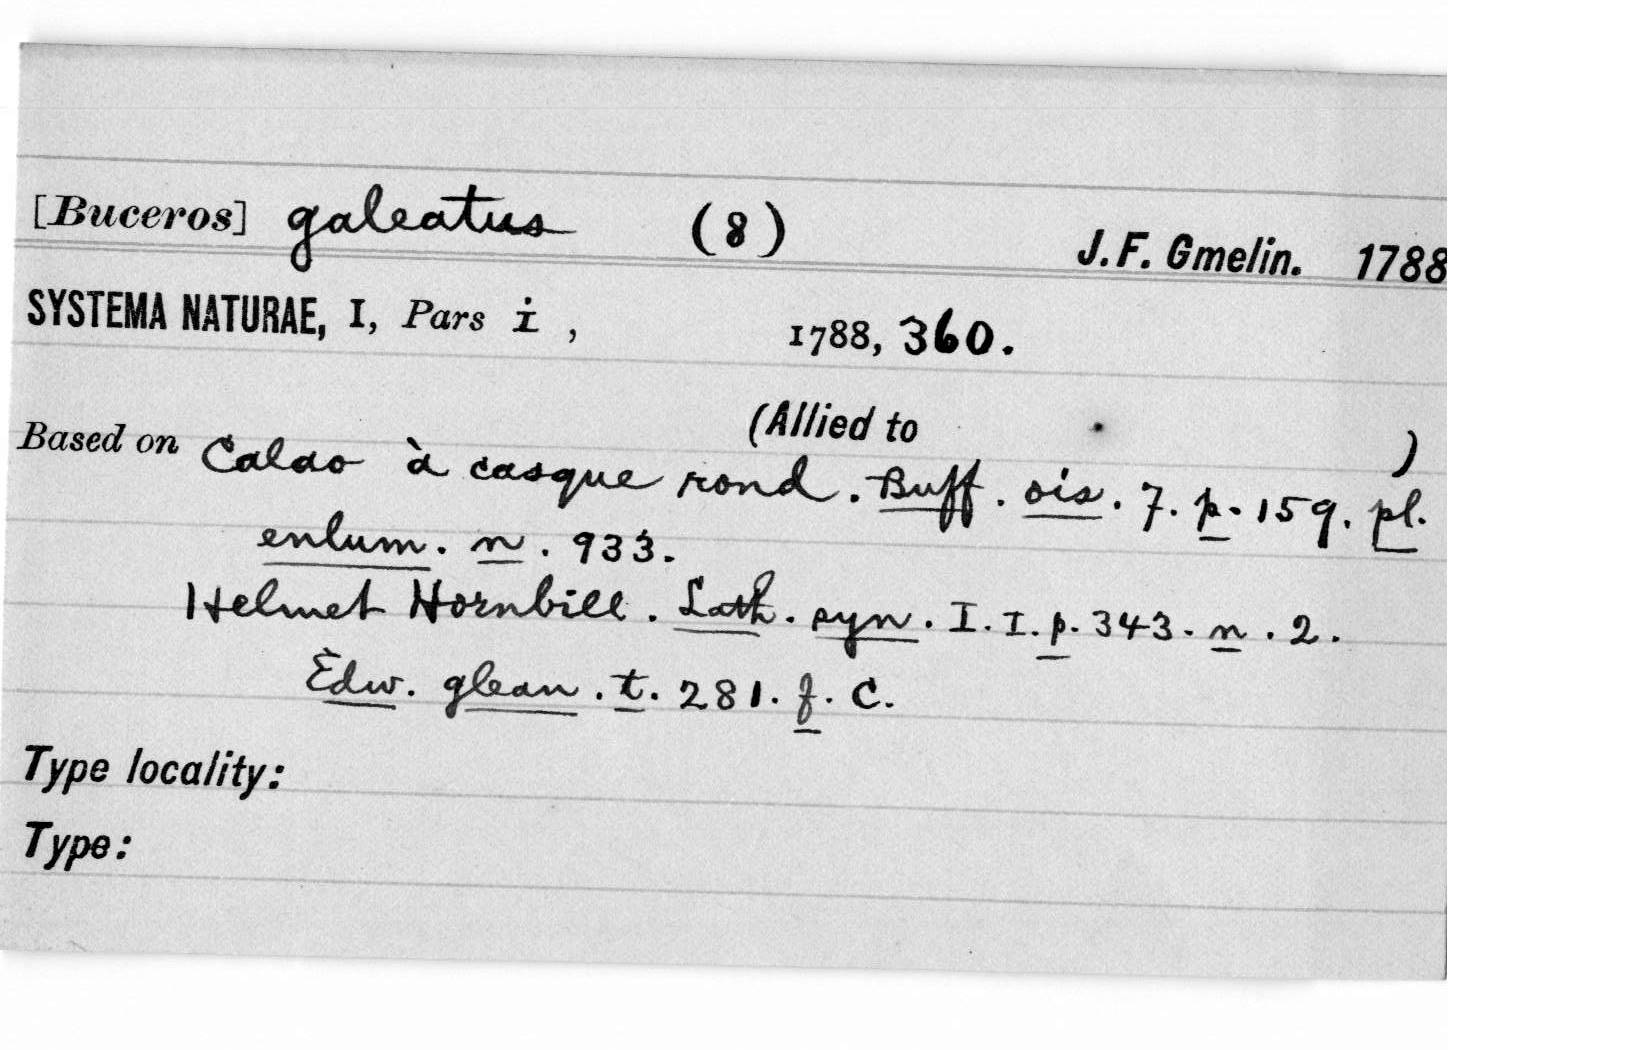 [Buceros] galeatus (8) J. F. Gmelin. 1788
SYSTEMA NATURAE, I, Pars i , 1788, 360.
(Allied to )
Based on Calao à casque rond. Buff. ois. 7. p. 159. pl.
enlum. n. 933.
Helmet Hornbill. Lath. syn. I. I. p. 343. n. 2.
Edw. glean. t. 281. f. C.
Type locality:
Type: